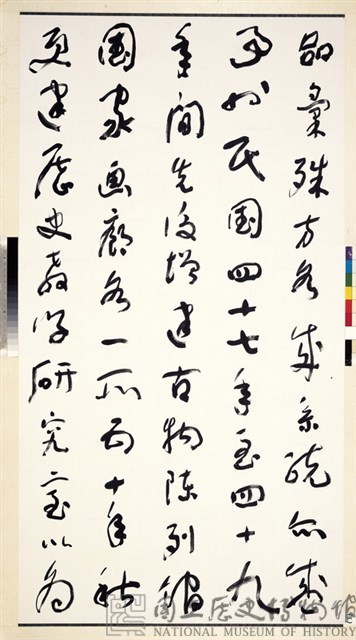 品彙殊方各成系統亦盛
事於民国四十七年至四十九
年間先後增建古物陳列館
國家画廊各一所五十年秋
更建歷史教学研究室以為
國立歷史博物館
NATIONAL MUSEUM OF HISTORY